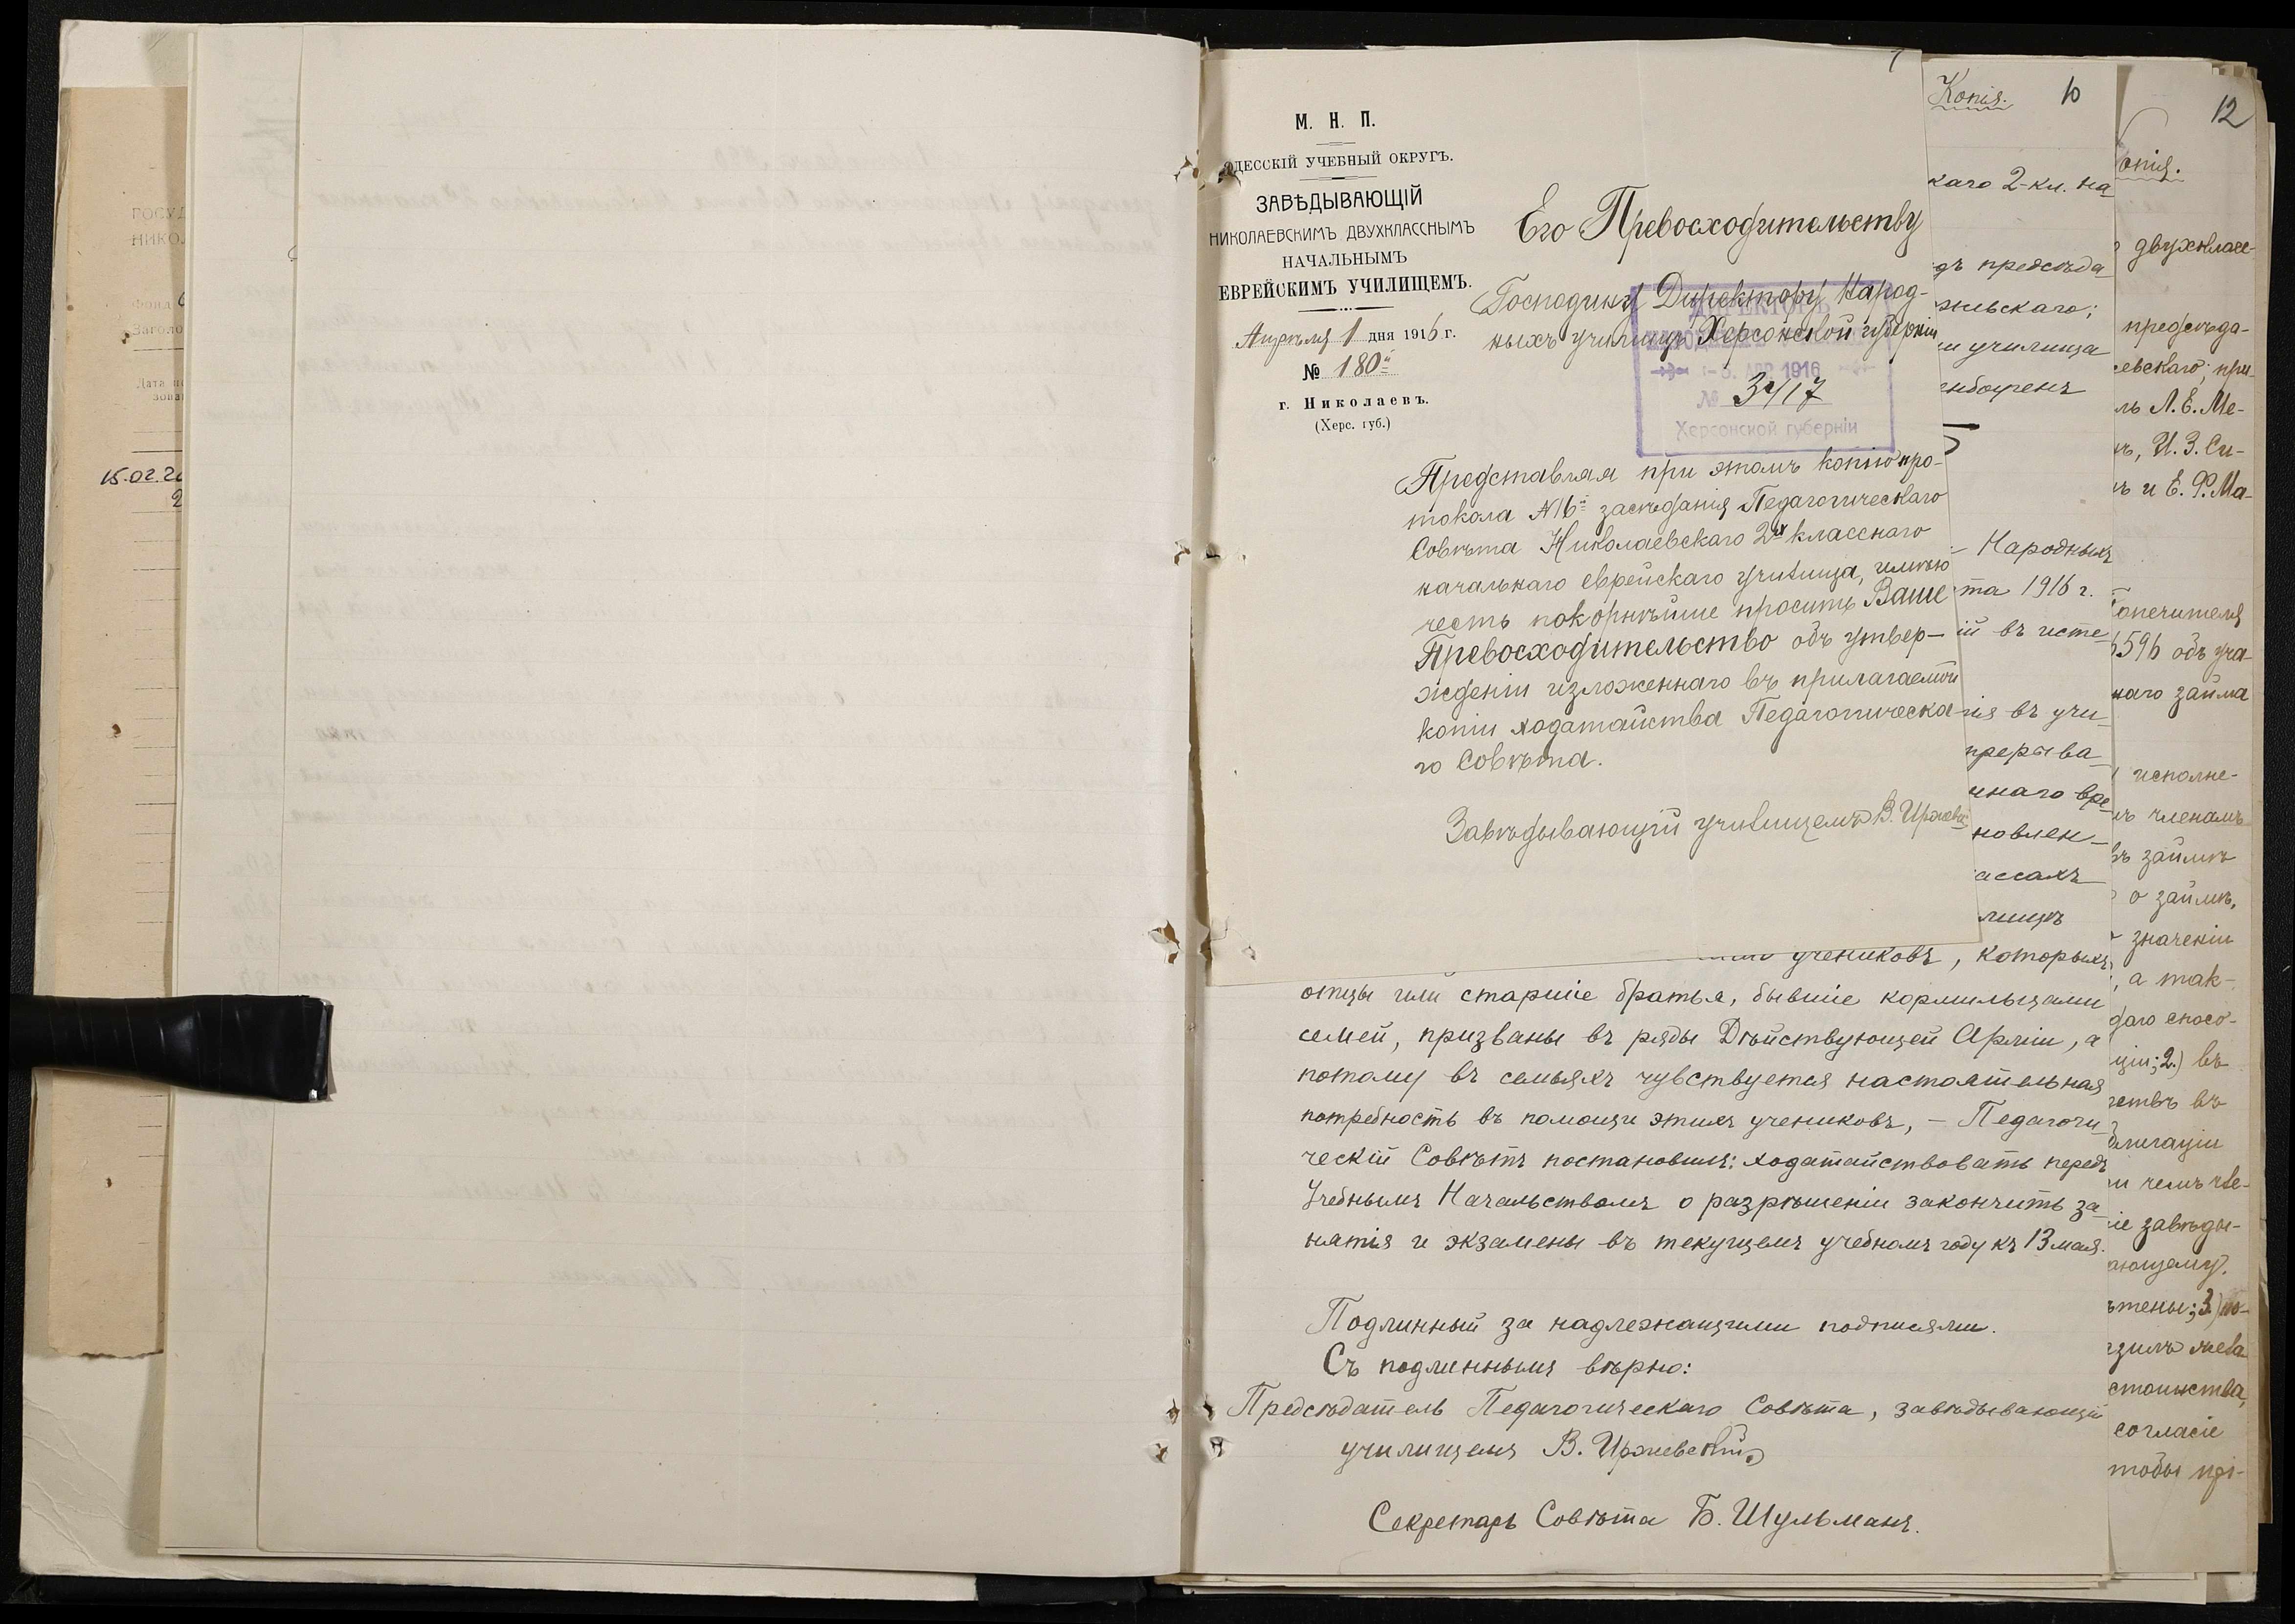 ГОСУД
НИКОЛ
Фонд
Заголо
Дата
зова
15.02.20
2
М. Н. П.
ОДЕССКІЙ УЧЕБНЫЙ ОКРУГЪ.
ЗАВѢДЫВАЮЩІЙ
НИКОЛАЕВСКИМЪ ДВУХКЛАССНЫМЪ
НАЧАЛЬНЫМЪ
ЕВРЕЙСКИМЪ УЧИЛИЩЕМЪ.
Апрѣля 1 дня 1916 г.
№ 180
г. Николаевъ.
(Херс. губ.)
Его Превосходительству
Господину Директору Народ-
ныхъ училищъ Херсонской губерніи
ДИРЕКТОРЪ
АПР 1916
№ 3417
Херсонской губерніи
Представляя при этомъ копію про-
токола №16 засѣданія Педагогическаго
Совѣта Николаевскаго 2хъ класснаго
начальнаго еврейскаго училища, имѣю
честь покорнѣйше просить Ваше
Превосходительство объ утвер-
жденіи изложеннаго въ прилагаемой
копіи ходатайства Педагогическа-
го Совѣта.
Завѣдывающій училищемъ В. Иржевскій
Копія. 10
каго 2-кл. на
дъ предсѣда
жевскаго;
и училища
Народныхъ
та 1916 г.
ій въ исте
ія въ учи-
прерыва-
ннаго вре-
новлен-
ассахъ
лищъ
учениковъ, которыхъ
отцы или старшіе братья, бывшіе кормильцами
семей, призваны въ ряды Дѣйствующей Арміи, а
потому въ семьяхъ чувствуется настоятельная
потребность въ помощи этихъ учениковъ, – Педагоги-
ческій Совѣтъ постановилъ: ходатайствовать передъ
Учебнымъ Начальствомъ о разрѣшеніи закончить за-
нятія и экзамены въ текущемъ учебномъ году къ 13 мая.
Подлинный за надлежащими подписями.
Съ подлиннымъ вѣрно:
Предсѣдатель Педагогическаго Совѣта, завѣдывающій
училищемъ В. Иржевскій
Секретарь Совѣта Б. Шульманъ.
12
опія.
двухкласс-
предсѣда-
евскаго; при-
ль Л. Е. Ме-
ъ, И. З. Си-
ъ и Е. Ф. Ма-
Попечителя
6596 объ уча-
наго займа
исполне-
ъ членамъ
въ займѣ
о займѣ,
значеніи
, а так-
даго спосо-
ціи; 2) въ
ствъ въ
блигаціи
іе завѣды-
ающему.
ѣтены; 3) по-
стоинства,
согласіе
тобы прі-